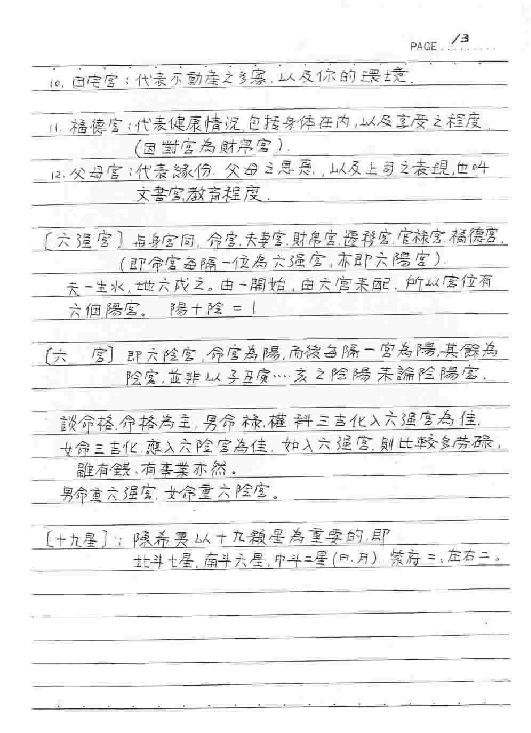 PAGE 13
10. 田宅宮:代表不動產之多寡,以及你的環境.
11. 福德宮:代表健康情況,包括身体在內,以及享受之程度
(因對宮為財帛宮).
12. 父母宮:代表緣份.父母之恩惠,以及上司之表現,也叫
文書宮,教育程度.
〔六強宮〕與身宮同,命宮.夫妻宮.財帛宮.遷移宮.官祿宮.福德宮.
(即命宮每隔一位為六強宮,亦即六陽宮).
天一生水,地六成之。由一開始,由六宮來配,所以宮位有
六個陽宮。 陽+陰=1
〔六 宮〕即六陰宮,命宮為陽,而後每隔一宮為陽,其餘為
陰宮,並非以子丑寅…亥之陰陽來論陰陽宮.
談命格,命格為主,男命祿.權.科三吉化入六強宮為佳.
女命三吉化,應入六陰宮為佳,如入六強宮,則比較多勞碌,
雖有錢、有事業亦然。
男命重六強宮,女命重六陰宮。
〔十九星〕:陳希夷以十九顆星為重要的,即
北斗七星.南斗六星,中斗二星(日.月) 紫府二、左右二。